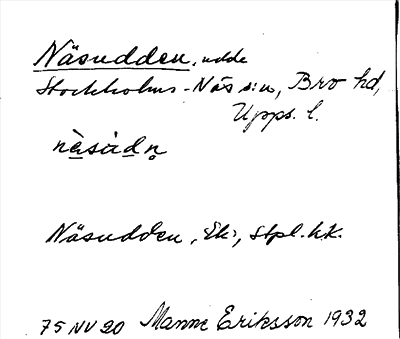 Näsudden, udde
Stockholms-Näs s:n, Bro hd,
Upps. l.
nä̀sùdn̥
Näsudden, Ek:, stpl.hk.
75 NV 20 Manne Eriksson 1932